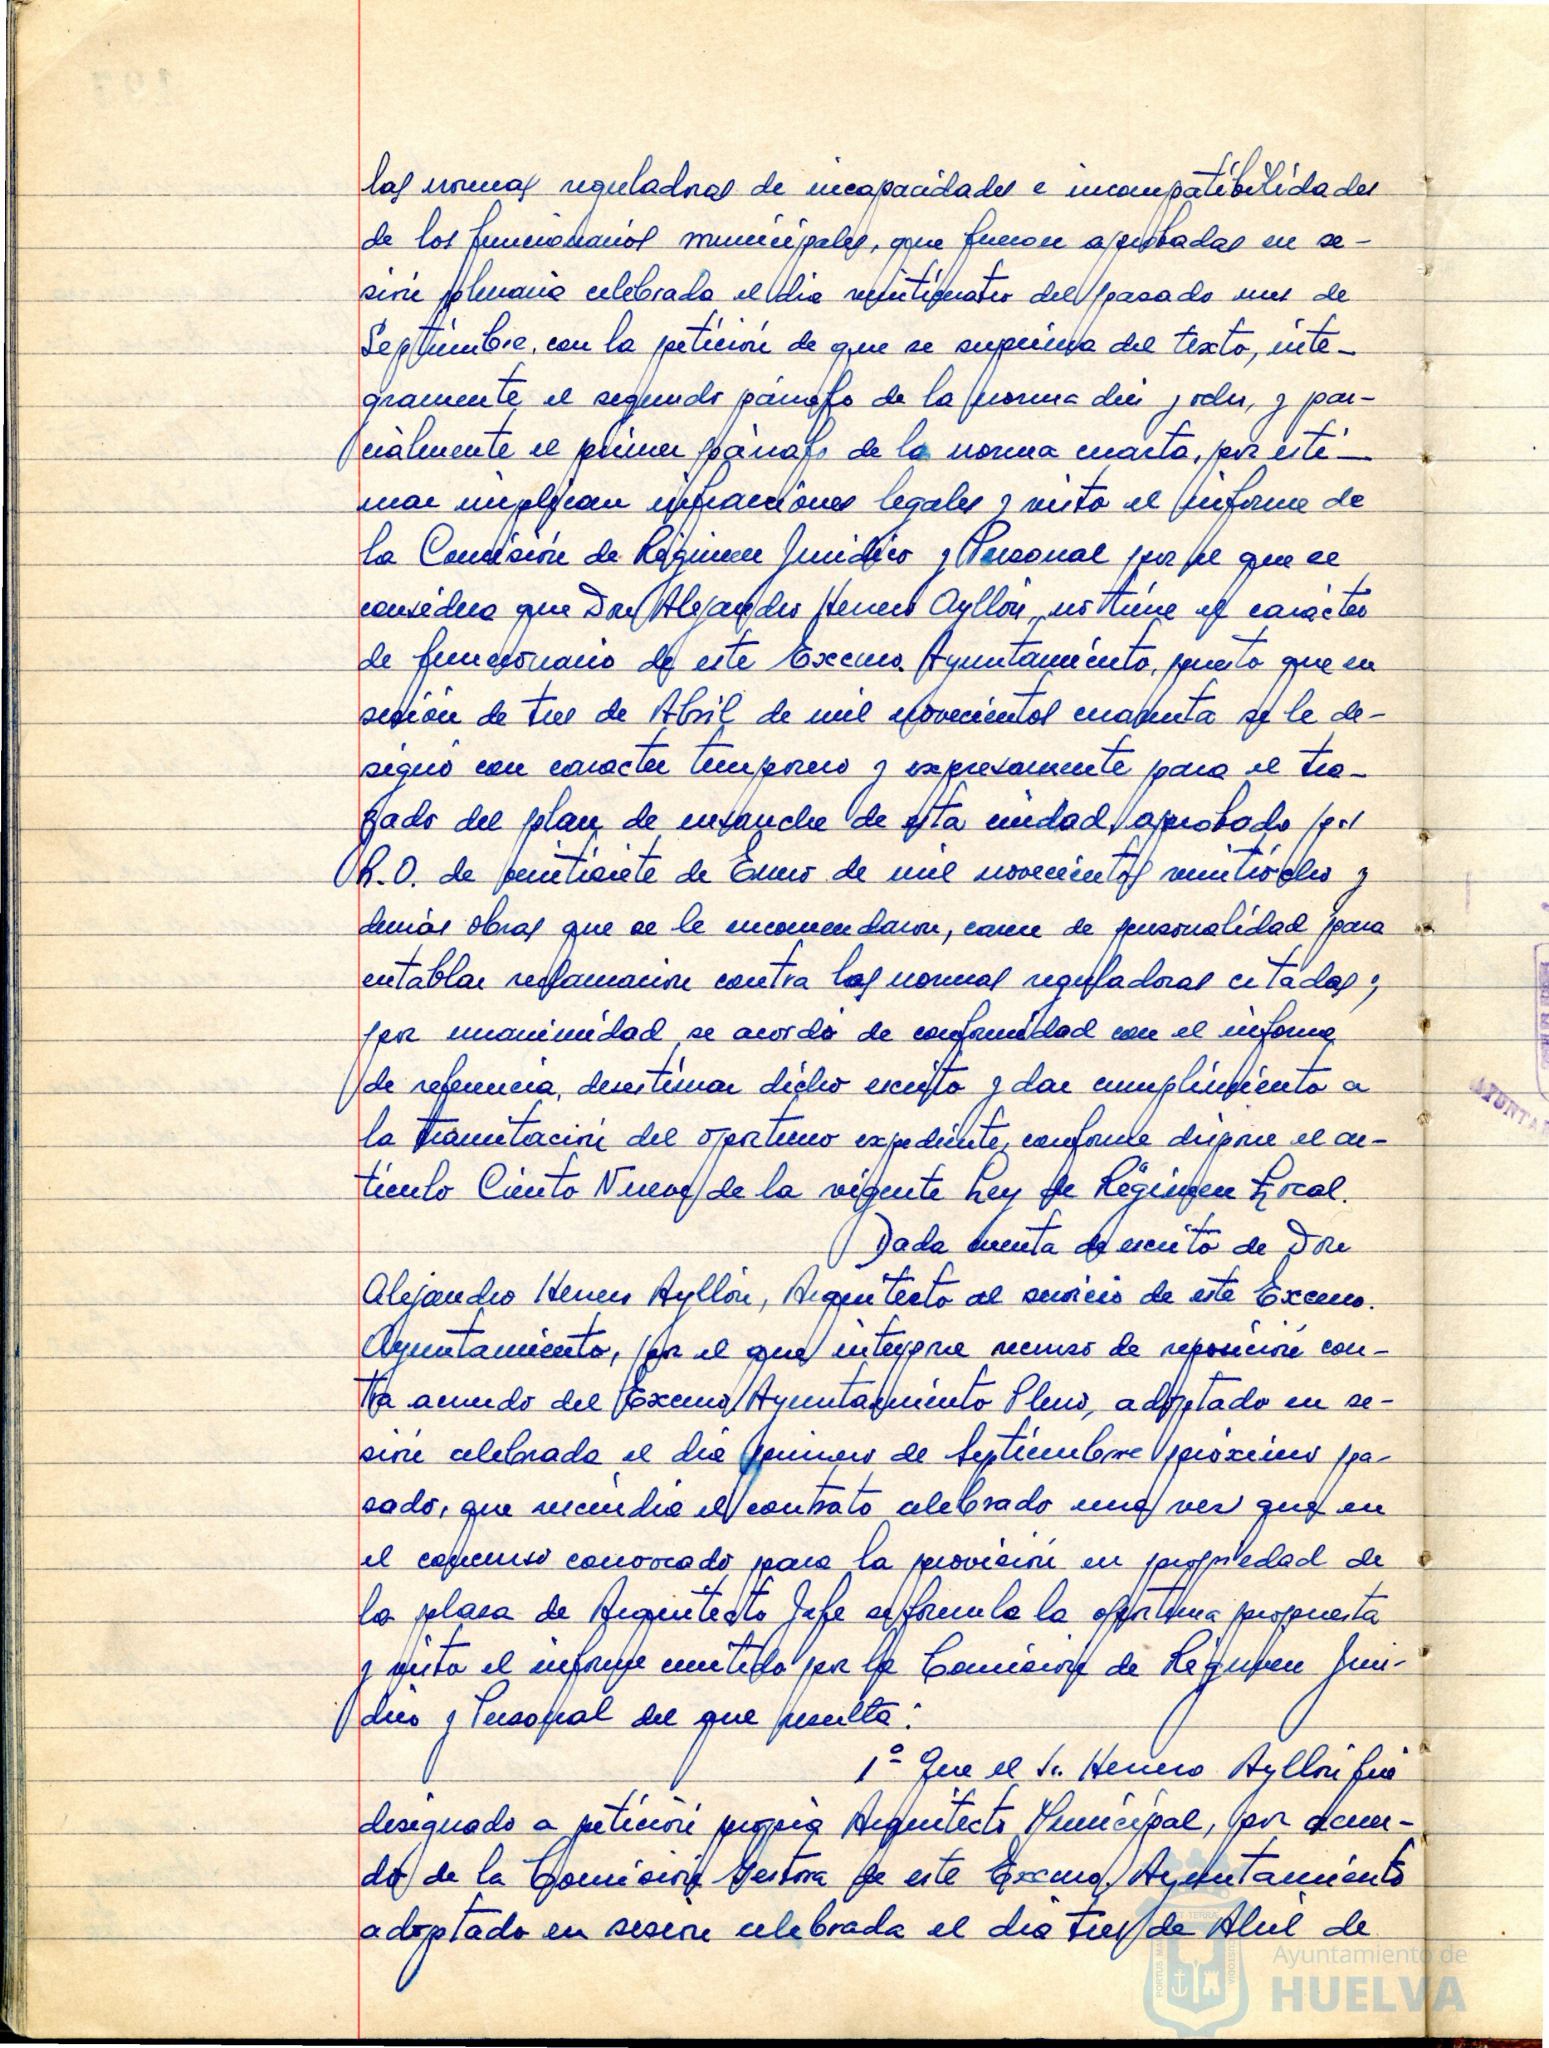 las normas reguladoras de incapacidades e incompatibilidades
de los funcionarios municipales, que fueron aprobadas en se-
sión plenaria celebrada el día veinticuatro del pasado mes de
Septiembre, con la petición de que se suprima del texto, inte-
gramente el segundo párrafo de la norma diez y ocho, y par-
cialmente el primer párrafo de la norma cuarta, por esti-
mar implican infracciones legales y visto el informe de
la Comisión de Régimen Jurídico y Personal por el que se
considera que Don Alejandro Herrero Ayllón, no tiene el carácter
de funcionario de este Excmo. Ayuntamiento, puesto que en
sesión de tres de Abril de mil novecientos cuarenta se le de-
signó con caracter temporero y expresamente para el tra-
zado del plan de ensanche de esta ciudad, aprobado por
R.O. de veintisiete de Enero de mil novecientos veintiocho y
demás obras que se le encomendaron, carece de personalidad para
entablar reclamación contra las normas reguladoras citadas, y
por unanimidad, se acordó de conformidad con el informe
de referencia, desestimar dicho escrito y dar cumplimiento a
la tramitación del oportuno expediente, conforme dispone el ar-
tículo Ciento Nueve de la vigente Ley de Régimen Local.
Dada cuenta de escrito de Don
Alejandro Herrero Ayllón, Arquitecto al servicio de este Excmo.
Ayuntamiento, por el que interpone recurso de reposición con-
tra acuerdo del Excmo Ayuntamiento Pleno, adoptado en se-
sión celebrada el día primero de Septiembre próximo pa-
sado, que rescindía el contrato celebrado una vez que en
el concurso convocado para la provisión en propiedad de
la plaza de Arquitecto Jefe se formula la oportuna propuesta
y visto el informe emitido por la Comisión de Régimen Jurí-
dico y Personal del que resulta:
1º Que el Sr. Herrero Ayllón fué
designado a petición propia Arquitecto Municipal, por acuer-
do de la Comisión Gestora de este Excmo. Ayuntamiento
adoptado en sesión celebrada el día tres de Abril de
Ayuntamiento de
HUELVA